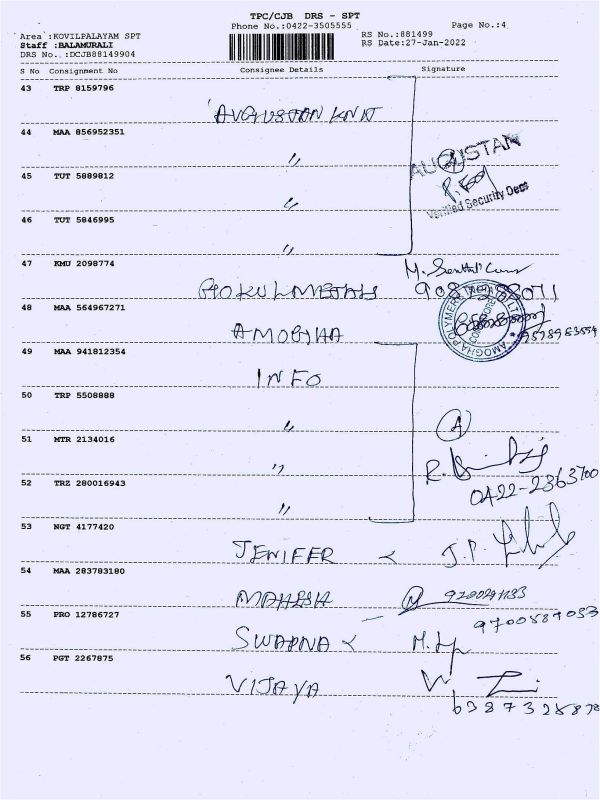 TPC/CJB DRS - SPT
Phone No.:0422-3505555
Page No.:4
Area :KOVILPALAYAM SPT
RS No.:881499
Staff :BALAMURALI
RS Date:27-Jan-2022
DRS No. :DCJB88149904
S No Consignment No Consignee Details Signature
43 TRP 8159796
AUGUSTAN KNIT
44 MAA 856952351
"
AUGUSTAN
45 TUT 5889812
"
Verified Security Dept
46 TUT 5846995
"
47 KMU 2098774
GOKUL METALS
48 MAA 564967271
AMOGHA
AMOGHA POLYMERS
COIMBATORE
49 MAA 941812354
INFO
50 TRP 5508888
"
A
51 MTR 2134016
"
0422-2363700
52 TRZ 280016943
"
53 NGT 4177420
JENIFER
J.P.
54 MAA 283783180
MAHESH
55 PRO 12786727
SWAPNA
56 PGT 2267875
VIJAYA